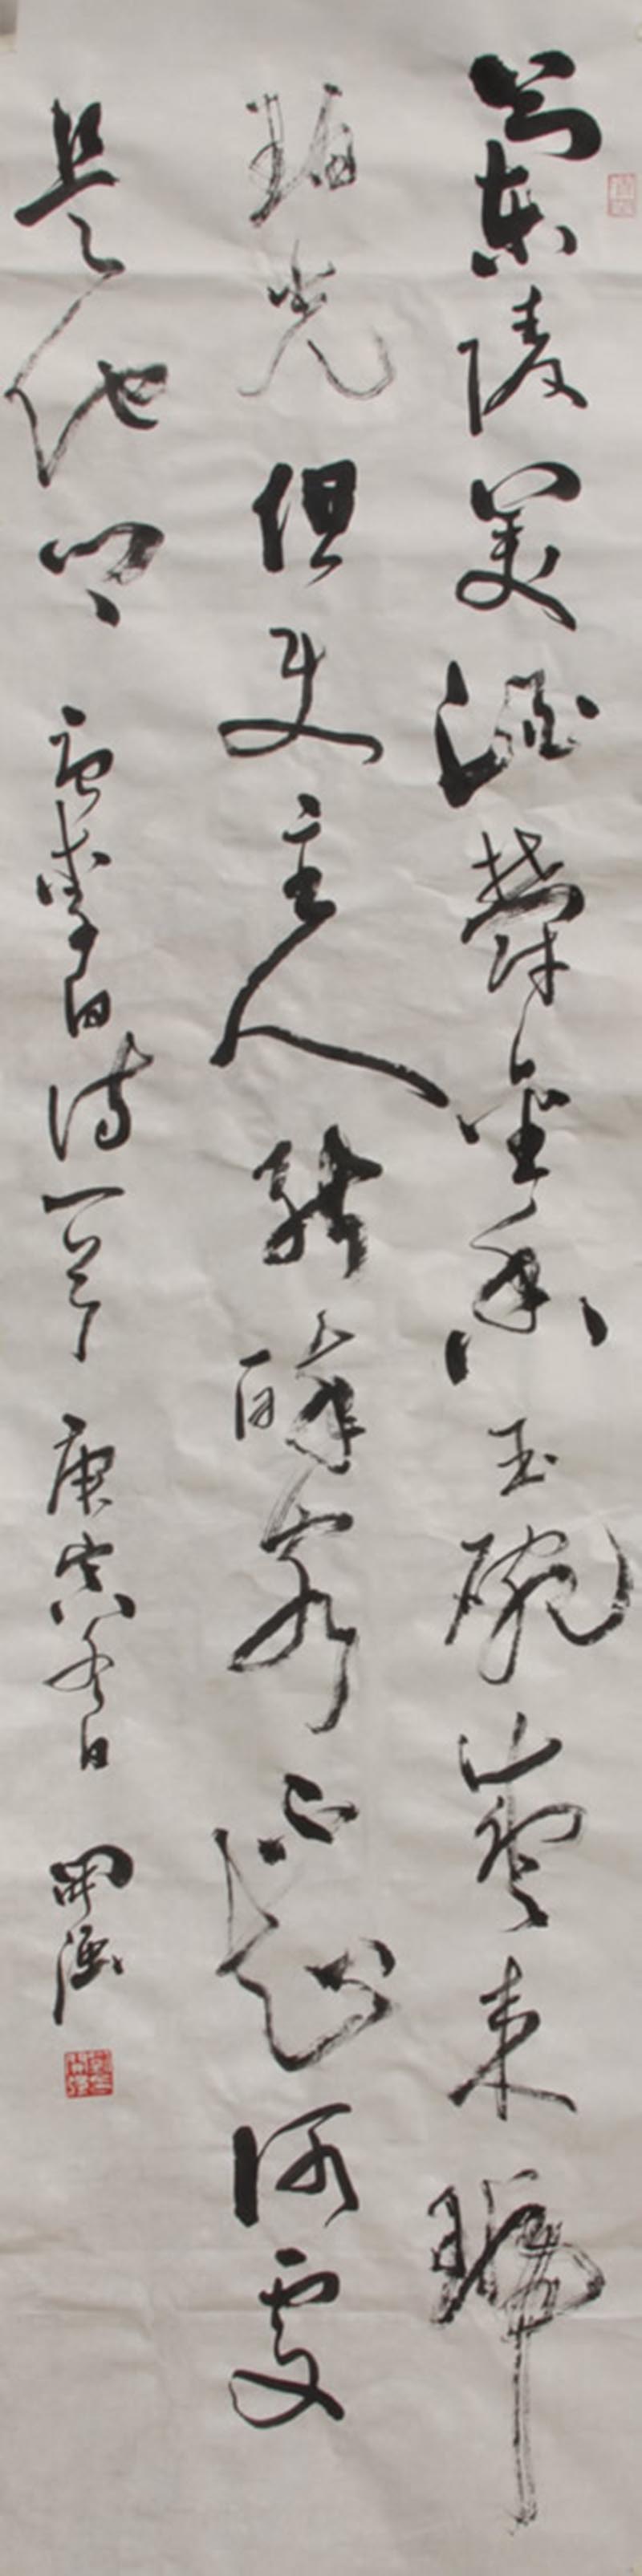 蘭陵美酒鬱金香玉碗盛来琥
珀光但使主人能醉客不知何處
是他鄉 唐李白诗一首 庚寅冬日 開